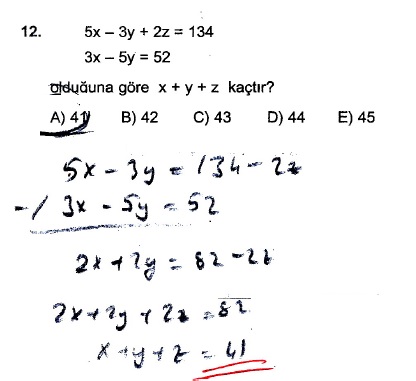 12. 5x – 3y + 2z = 134
3x – 5y = 52
olduğuna göre x + y + z kaçtır?
A) 41 B) 42 C) 43 D) 44 E) 45
5x - 3y = 134 - 2z
-/ 3x - 5y = 52
2x + 2y = 82 - 2z
2x + 2y + 2z = 82
x + y + z = 41